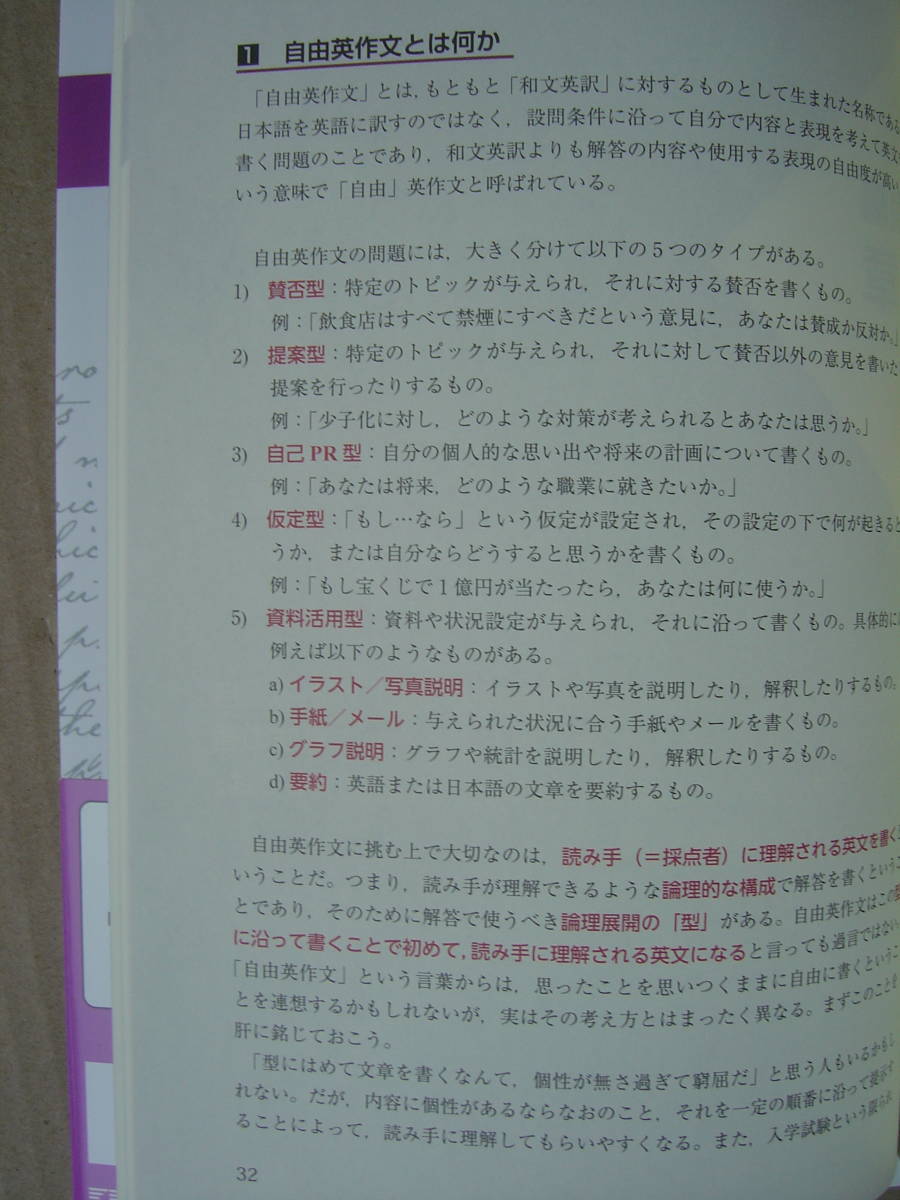 1 自由英作文とは何か
「自由英作文」とは，もともと「和文英訳」に対するものとして生まれた名称である
日本語を英語に訳すのではなく，設問条件に沿って自分で内容と表現を考えて英文
書く問題のことであり，和文英訳よりも解答の内容や使用する表現の自由度が高い
いう意味で「自由」英作文と呼ばれている。
自由英作文の問題には，大きく分けて以下の５つのタイプがある。
1) 賛否型：特定のトピックが与えられ，それに対する賛否を書くもの。
例：「飲食店はすべて禁煙にすべきだという意見に，あなたは賛成か反対か。」
2) 提案型：特定のトピックが与えられ，それに対して賛否以外の意見を書いた
提案を行ったりするもの。
例：「少子化に対し，どのような対策が考えられるとあなたは思うか。」
3) 自己 PR 型：自分の個人的な思い出や将来の計画について書くもの。
例：「あなたは将来，どのような職業に就きたいか。」
4) 仮定型：「もし…なら」という仮定が設定され，その設定の下で何が起きると
うか，または自分ならどうすると思うかを書くもの。
例：「もし宝くじで１億円が当たったら，あなたは何に使うか。」
5) 資料活用型：資料や状況設定が与えられ，それに沿って書くもの。具体的には
例えば以下のようなものがある。
a) イラスト／写真説明：イラストや写真を説明したり，解釈したりするもの。
b) 手紙／メール：与えられた状況に合う手紙やメールを書くもの。
c) グラフ説明：グラフや統計を説明したり，解釈したりするもの。
d) 要約：英語または日本語の文章を要約するもの。
自由英作文に挑む上で大切なのは，読み手（＝採点者）に理解される英文を書く
いうことだ。つまり，読み手が理解できるような論理的な構成で解答を書くというこ
とであり，そのために解答で使うべき論理展開の「型」がある。自由英作文はこの型
に沿って書くことで初めて，読み手に理解される英文になると言っても過言ではない。
「自由英作文」という言葉からは，思ったことを思いつくままに自由に書くというこ
とを連想するかもしれないが，実はその考え方とはまったく異なる。まずこのことを
肝に銘じておこう。
「型にはめて文章を書くなんて，個性が無さ過ぎて窮屈だ」と思う人もいるかもし
れない。だが，内容に個性があるならなおのこと，それを一定の順番に沿って提示す
ることによって，読み手に理解してもらいやすくなる。また，入学試験という限られ
32
no
ts
n
hic
p.
the